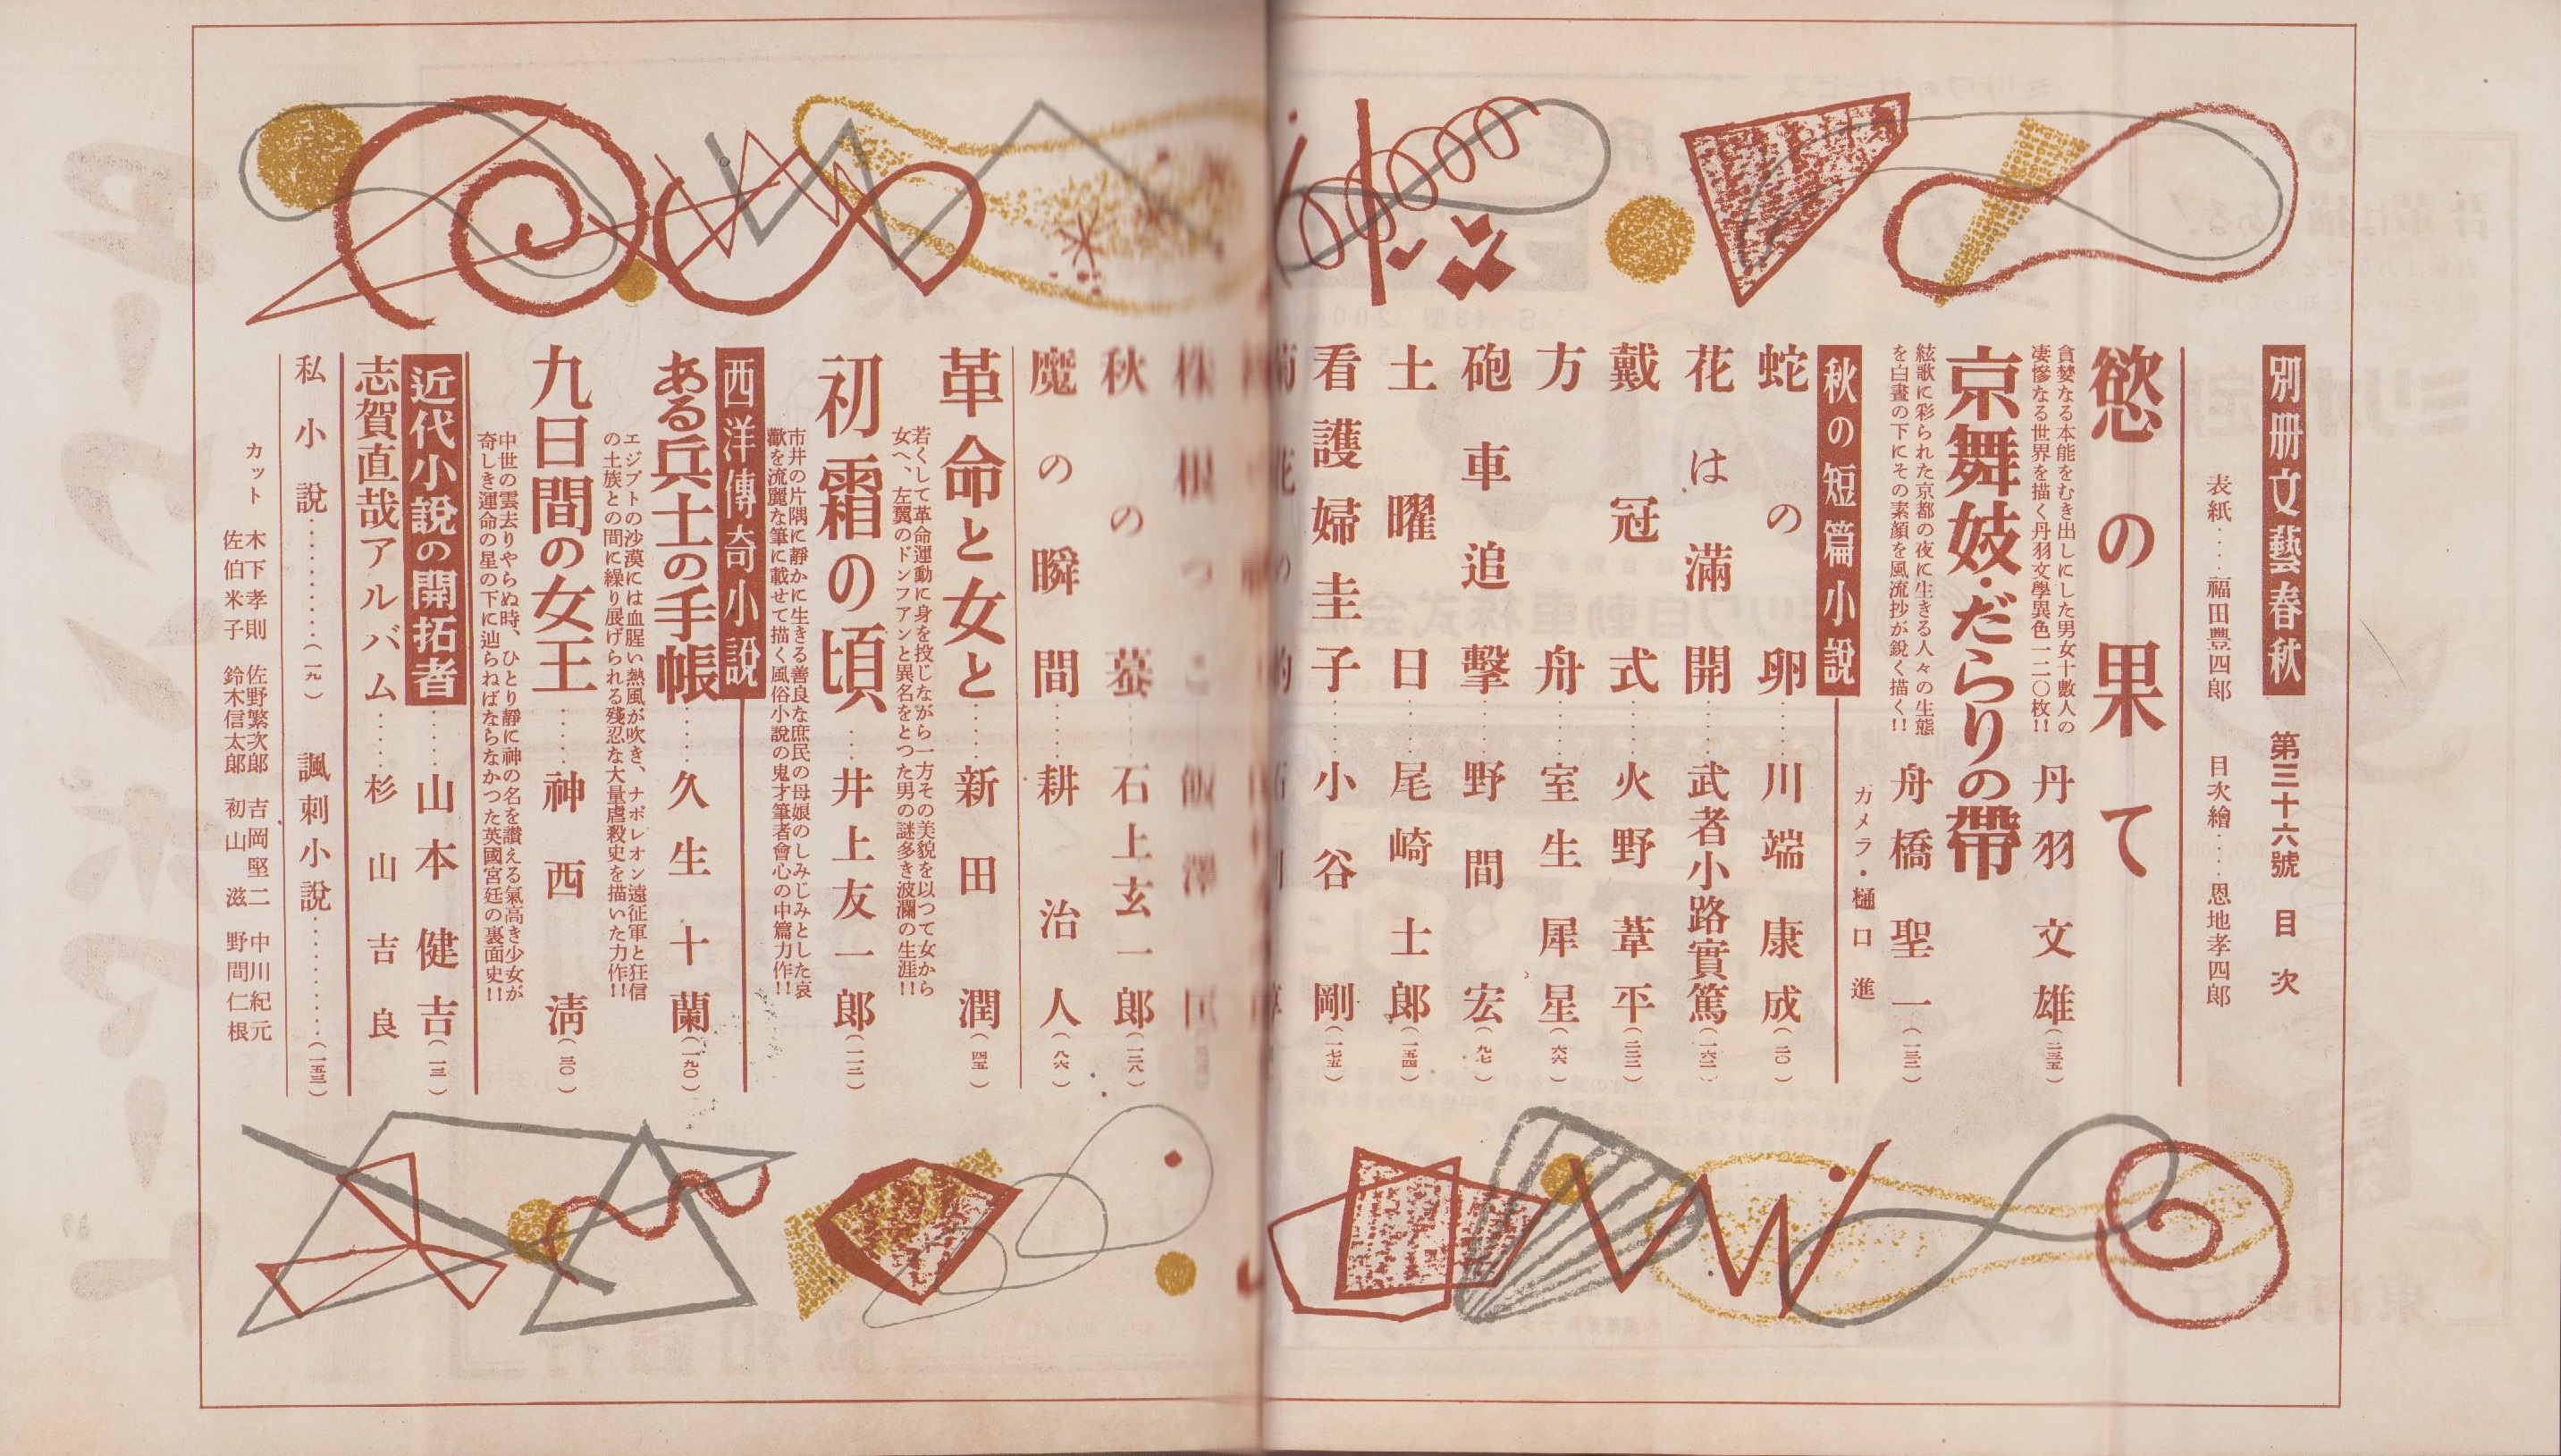 別册文藝春秋　第三十六號　目次
表紙‥‥福田豐四郎　目次繪‥‥恩地孝四郎
慾の果て
丹羽文雄(二三五)
貪婪なる本能をむき出しにした男女十數人の
凄慘なる世界を描く丹羽文學異色一二〇枚!!
京舞妓・だらりの帶
舟橋聖一(一三二)
絃歌に彩られた京都の夜に生きる人々の生態
を白晝の下にその素顏を風流抄が鋭く描く!!
カメラ・樋口進
秋の短篇小説
蛇の卵‥‥川端康成(二〇)
花は滿開‥‥武者小路實篤(一六二)
戴冠式‥‥火野葦平(二二二)
方舟‥‥室生犀星(六六)
砲車追擊‥‥野間宏(九七)
土曜日‥‥尾崎士郎(一五四)
看護婦圭子‥‥小谷剛(一七五)
株根っこ　飯澤匡
秋の蟇‥‥石上玄一郎(一二八)
魔の瞬間‥‥耕治人(八六)
革命と女と‥‥新田潤(四五)
若くして革命運動に身を投じながら一方その美貌を以つて女から
女へ、左翼のドンファンと異名をとつた男の謎多き波瀾の生涯!!
初霜の頃‥‥井上友一郎(一一二)
市井の片隅に靜かに生きる善良な庶民の母娘のしみじみとした哀
歡を流麗な筆に載せて描く風俗小説の鬼才筆者會心の中篇力作!!
西洋傳奇小説
ある兵士の手帳‥‥久生十蘭(一九〇)
エジプトの沙漠には血腥い熱風が吹き、ナポレオン遠征軍と狂信
の土族との間に繰り展げられる殘忍な大量虐殺史を描いた力作!!
九日間の女王‥‥神西淸(三〇)
中世の雲去りやらぬ時、ひとり靜に神の名を讃える氣高き少女が
奇しき運命の星の下に辿らねばならなかつた英國宮廷の裏面史!!
近代小説の開拓者‥‥山本健吉(一三)
志賀直哉アルバム‥‥杉山吉良
私小説‥‥‥‥(一九)　諷刺小説‥‥‥‥(一五三)
カット　木下孝則　佐野繁次郎　吉岡堅二　中川紀元
佐伯米子　鈴木信太郎　初山滋　野間仁根